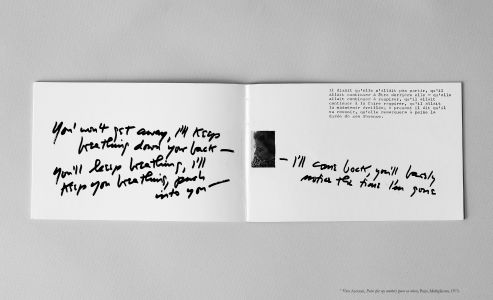 You won't get away, I'll keep
breathing down your back —
You'll keep breathing, I'll
keep you breathing, push
into you —
Il disait qu'elle n'allait pas partir, qu'il
allait continuer à être derrière elle — qu'elle
allait continuer à respirer, qu'il allait
continuer à la faire respirer, qu'il allait
la maintenir éveillée, à présent il dit qu'il
va revenir, qu'elle remarquera à peine la
durée de son absence.
— I'll come back, you'll barely
notice the time I'm gone
Vito Acconci,
Paris, 1975.